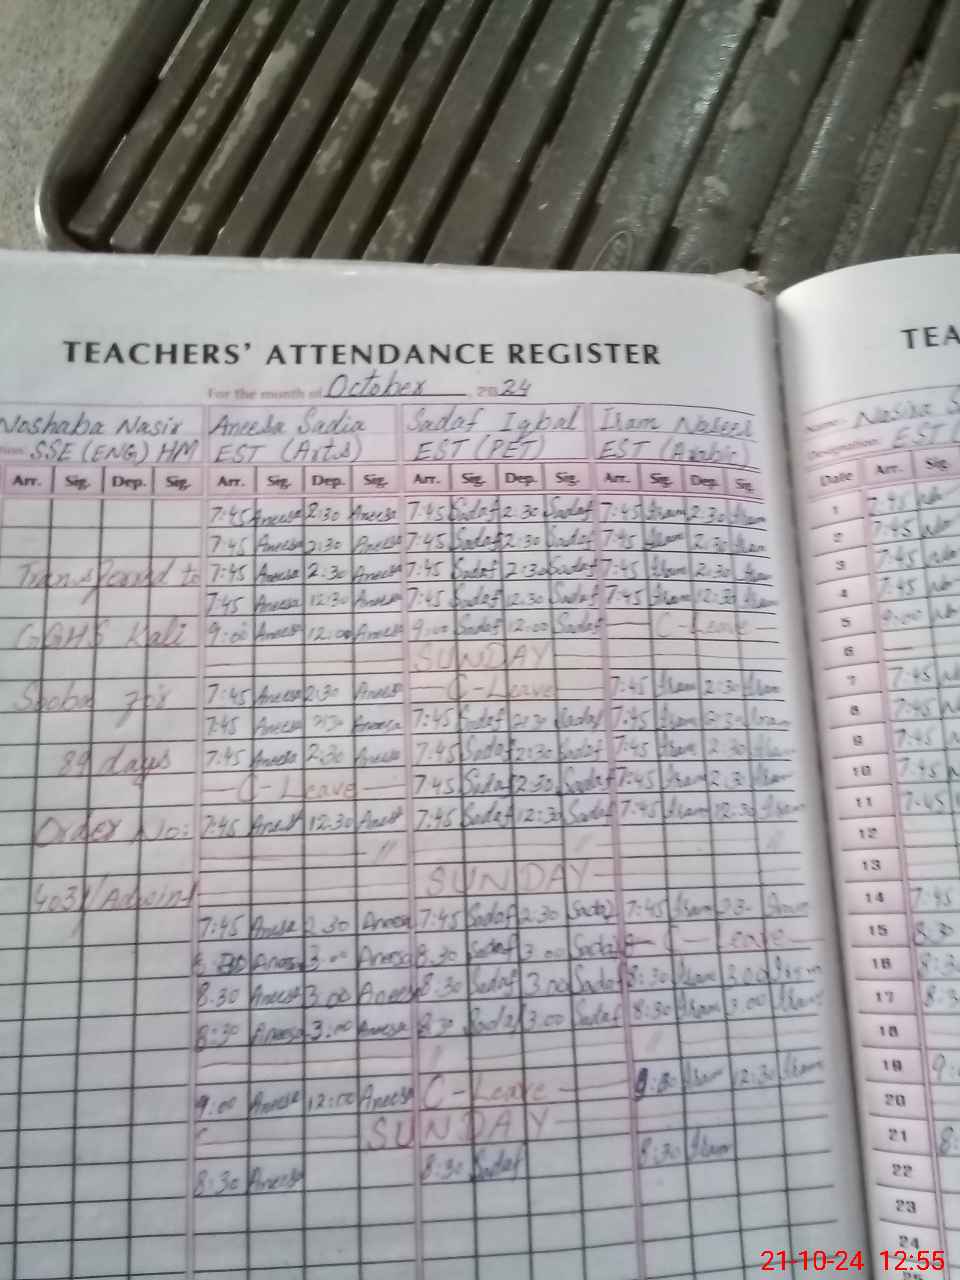 TEACHERS' ATTENDANCE REGISTER TEA
For the month of October, 2024
Noshaba Nasir Aneesa Sadia Sadaf Iqbal Iram Nabeel Name: Nasira S
SSE (ENG) HM EST (Arts) EST (PET) EST (Arabic) Designation: EST (
Arr. Sig. Dep. Sig. Arr. Sig. Dep. Sig. Arr. Sig. Dep. Sig. Arr. Sig. Dep. Sig. Date Arr. Sig.
7:45 Aneesa 2:30 Aneesa 7:45 Sadaf 2:30 Sadaf 7:45 Iram 2:30 Iram 1 7:45
7:45 Aneesa 2:30 Aneesa 7:45 Sadaf 2:30 Sadaf 7:45 Iram 2:30 Iram 2 7:45
Transferred to 7:45 Aneesa 2:30 Aneesa 7:45 Sadaf 2:30 Sadaf 7:45 Iram 2:30 Iram 3 7:45
7:45 Aneesa 12:30 Aneesa 7:45 Sadaf 12:30 Sadaf 7:45 Iram 12:30 Iram 4 7:45
GGHS Kali 9:00 Aneesa 12:00 Aneesa 9:00 Sadaf 12:00 Sadaf C-Leave 5 9:00
SUNDAY 6
Sooba for 7:45 Aneesa 2:30 Aneesa C-Leave 7:45 Iram 2:30 Iram 7 7:45
7:45 Aneesa 2:30 Aneesa 7:45 Sadaf 2:30 Sadaf 7:45 Iram 2:30 Iram 8 7:45
89 days 7:45 Aneesa 2:30 Aneesa 7:45 Sadaf 2:30 Sadaf 7:45 Iram 2:30 Iram 9 7:45
C-Leave 7:45 Sadaf 2:30 Sadaf 7:45 Iram 2:30 Iram 10 7:45
Order No: 7:45 Aneesa 12:30 Aneesa 7:45 Sadaf 12:30 Sadaf 7:45 Iram 12:30 Iram 11 7:45
" " " 12
4031 SUNDAY 13
7:45 Aneesa 2:30 Aneesa 7:45 Sadaf 2:30 Sadaf 7:45 Iram 14 7:45
8:30 Aneesa 3:00 Aneesa 8:30 Sadaf 3:00 Sadaf C-Leave 15 8:30
8:30 Aneesa 3:00 Aneesa 8:30 Sadaf 3:00 Sadaf 8:30 Iram 3:00 Iram 16 8:3
8:30 Aneesa 3:00 Aneesa 8:30 Sadaf 3:00 Sadaf 8:30 Iram 3:00 Iram 17 8:3
" " 18
9:00 Aneesa 12:00 Aneesa C-Leave Iram 12:30 Iram 19 9:
SUNDAY 20
8:30 Aneesa 8:30 Sadaf 8:30 Iram 21 8:
22
23
24
21-10-24 12:55